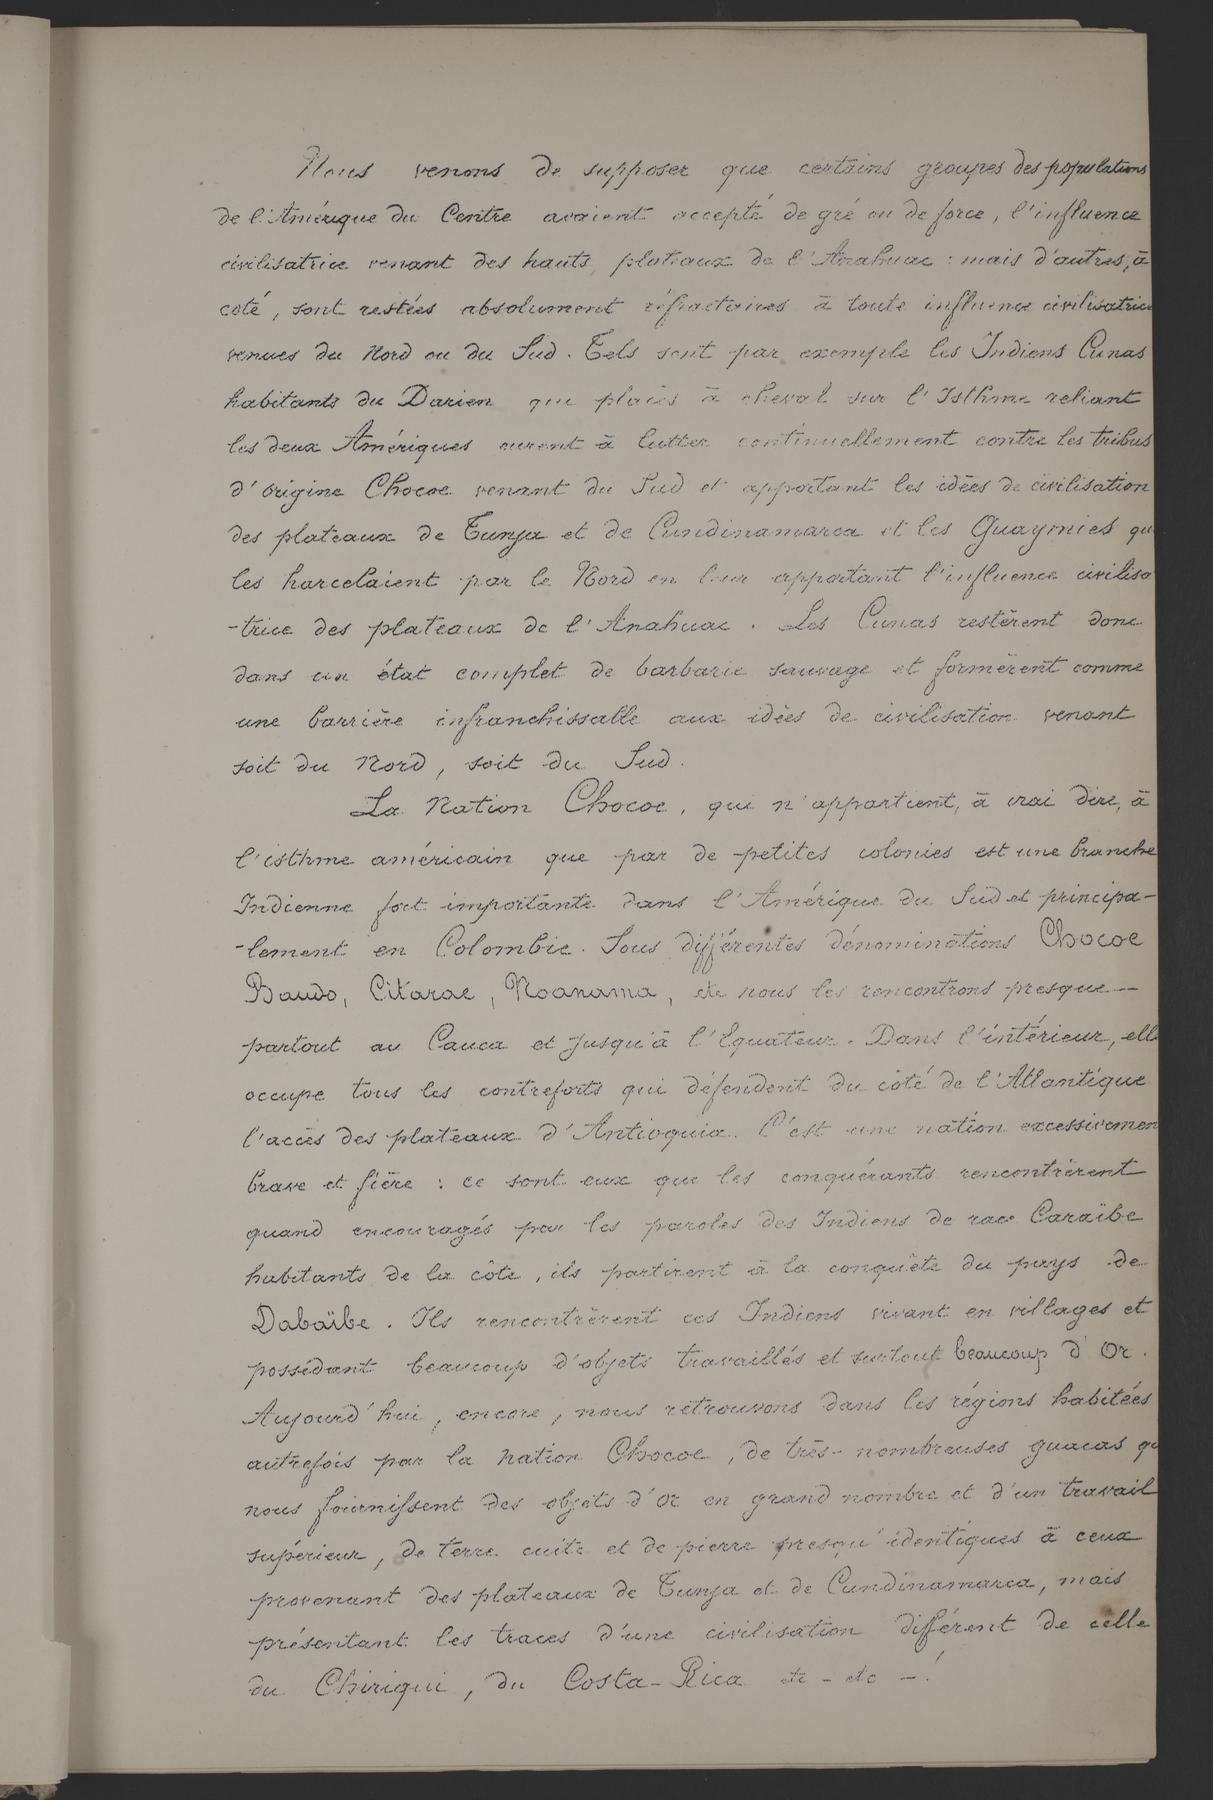 Nous venons de supposer que certains groupes des populations
de l'Amérique du Centre avaient accepté de gré ou de force, l'influence
civilisatrice venant des hauts plateaux de l'Anahuac : mais d'autres, à
coté, sont restées absolument réfractaires à toute influence civilisatrice
venues du Nord ou du Sud. Tels sont par exemple les Indiens Cunas
habitants du Darien qui placés à cheval sur l'Isthme reliant
les deux Amériques eurent à lutter continuellement contre les tribus
d'origine Chocoe venant du Sud et apportant les idées de civilisation
des plateaux de Tunja et de Cundinamarca et les Guaymies qu
les harcelaient par le Nord en leur apportant l'influence civilisa
-trice des plateaux de l'Anahuac. Les Cunas restèrent donc
dans un état complet de barbarie sauvage et formèrent comme
une barrière infranchissable aux idées de civilisation venant
soit du Nord, soit du Sud.
La Nation Chocoe, qui n'appartient, à vrai dire, à
l'isthme américain que par de petites colonies est une branche
Indienne fort importante dans l'Amérique du Sud et principa-
-lement en Colombie. Sous différentes dénominations Chocoe
Baudo, Citarae, Noanama, etc nous les rencontrons presque—
partout au Cauca et jusqu'à l'Equateur. Dans l'intérieur, elle
occupe tous les contreforts qui défendent du côté de l'Atlantique
l'accès des plateaux d'Antioquia. C'est une nation excessivemen
brave et fière : ce sont eux que les conquérants rencontrèrent
quand encouragés par les paroles des Indiens de race Caraïbe
habitants de la côte, ils partirent à la conquête du pays de
Dabaïbe. Ils rencontrèrent ces Indiens vivant en villages et
possédant beaucoup d'objets travaillés et surtout beaucoup d'Or.
Aujourd'hui, encore, nous retrouvons dans les régions habitées
autrefois par la nation Chocoe, de très-nombreuses guacas qu
nous fournissent des objets d'or en grand nombre et d'un travail
supérieur, de terre cuite et de pierre presqu'identiques à ceux
provenant des plateaux de Tunja et de Cundinamarca, mais
présentant les traces d'une civilisation différent de celle
du Chiriqui, du Costa-Rica etc - etc —!